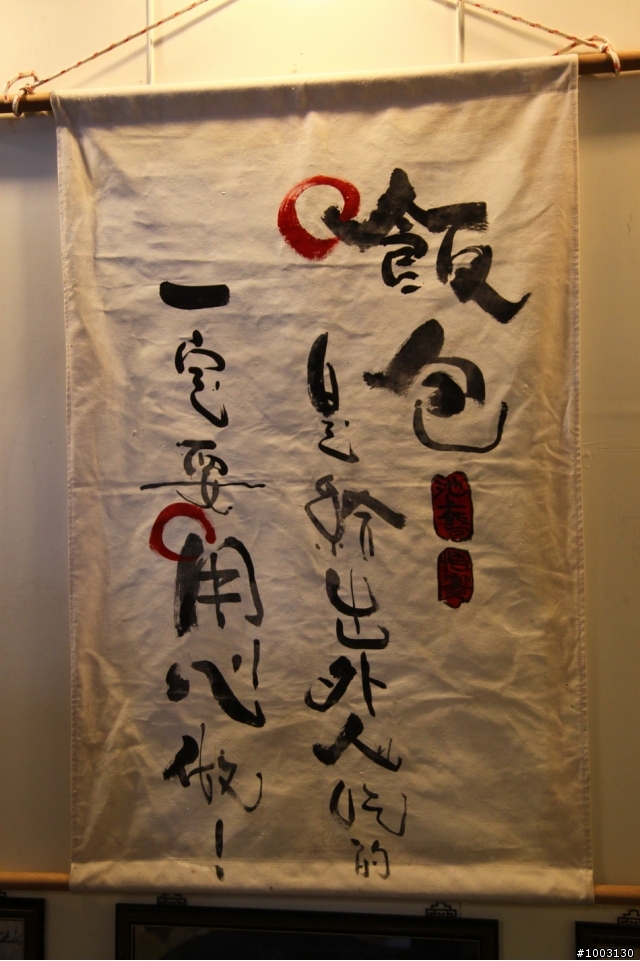 飯包
是給出外人吃的
一定要用心做！
#1003130